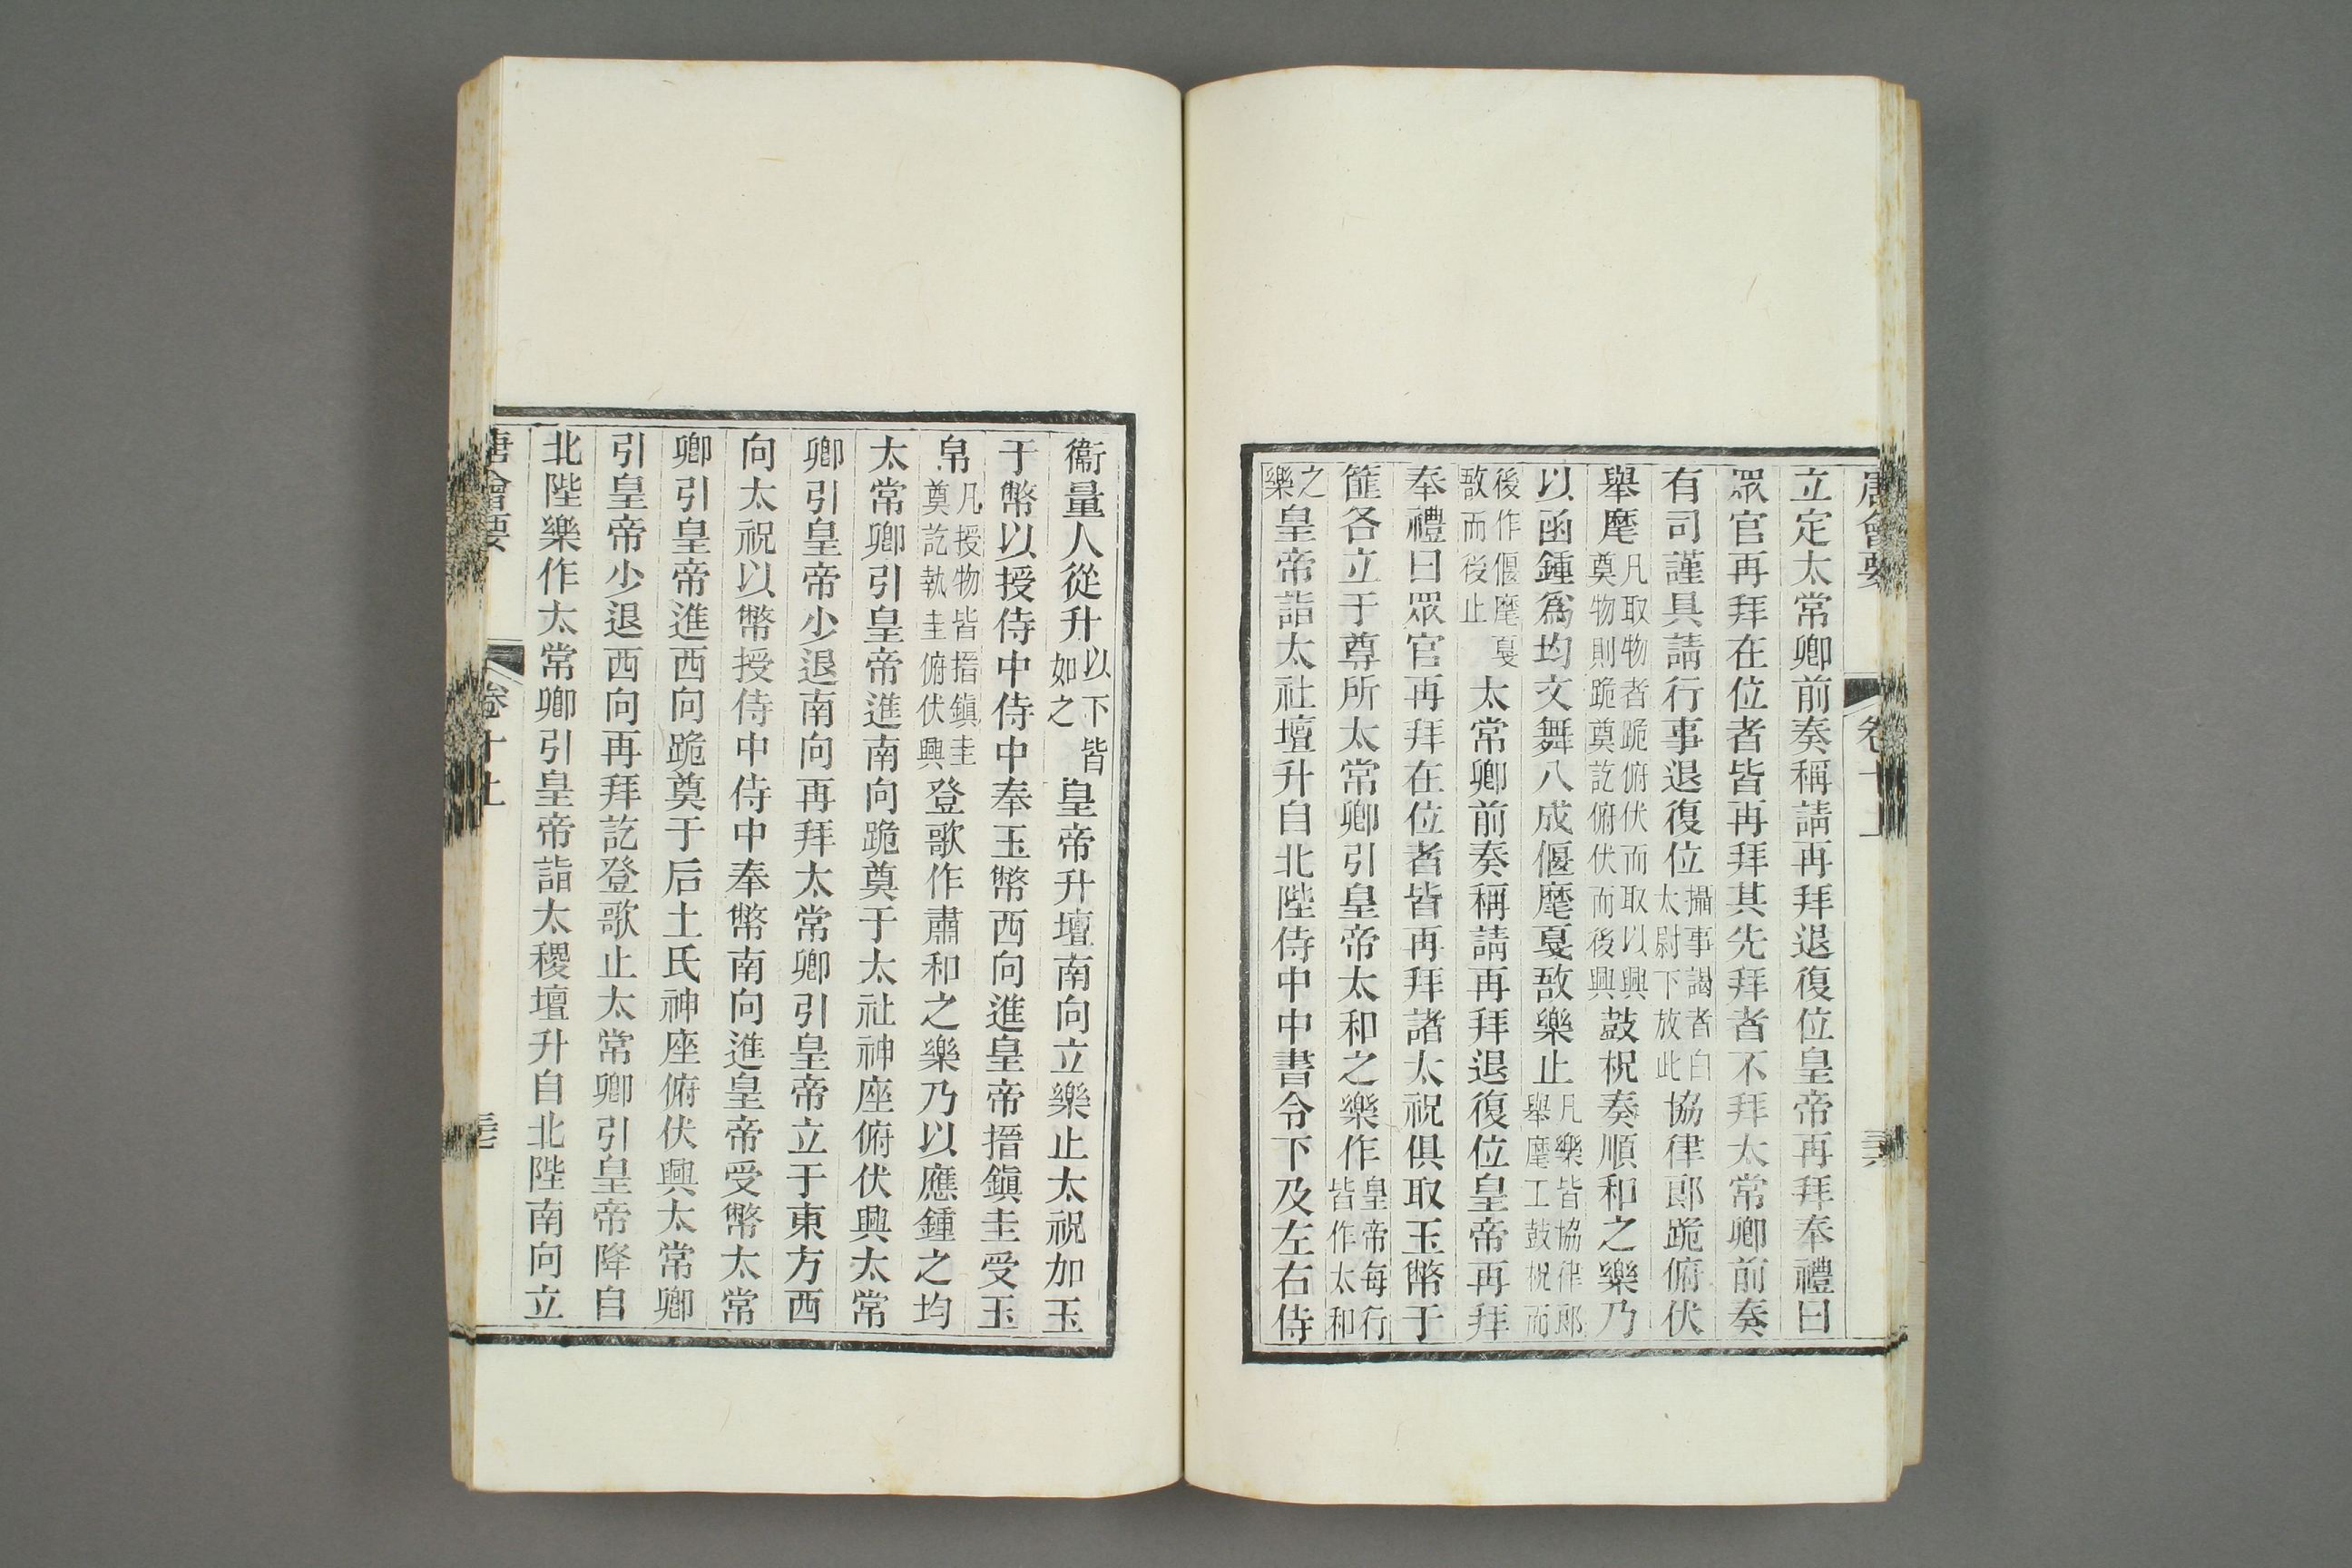 唐會要 卷十上
立定太常卿前奏稱請再拜退復位皇帝再拜奉禮曰
眾官再拜在位者皆再拜其先拜者不拜太常卿前奏
有司謹具請行事退復位攝事謁者白太尉下放此協律郎跪俯伏
舉麾凡取物者跪俯伏而取以興奠物則跪奠訖俯伏而後興鼓柷奏順和之樂乃
以函鍾爲均文舞八成偃麾戛敔樂止凡樂皆協律郎舉麾工鼓柷而
後作偃麾戛敔而後止太常卿前奏稱請再拜退復位皇帝再拜
奉禮曰眾官再拜在位者皆再拜諸太祝俱取玉幣于
篚各立于尊所太常卿引皇帝太和之樂作皇帝每行皆作太和
之樂皇帝詣太社壇升自北陛侍中中書令下及左右侍
衞量人從升以下皆如之皇帝升壇南向立樂止太祝加玉
于幣以授侍中侍中奉玉幣西向進皇帝搢鎭圭受玉
帛凡授物皆搢鎭圭奠訖執圭俯伏興登歌作肅和之樂乃以應鍾之均
太常卿引皇帝進南向跪奠于太社神座俯伏興太常
卿引皇帝少退南向再拜太常卿引皇帝立于東方西
向太祝以幣授侍中侍中奉幣南向進皇帝受幣太常
卿引皇帝進西向跪奠于后土氏神座俯伏興太常卿
引皇帝少退西向再拜訖登歌止太常卿引皇帝降自
北陛樂作太常卿引皇帝詣太稷壇升自北陛南向立
唐會要 卷十上